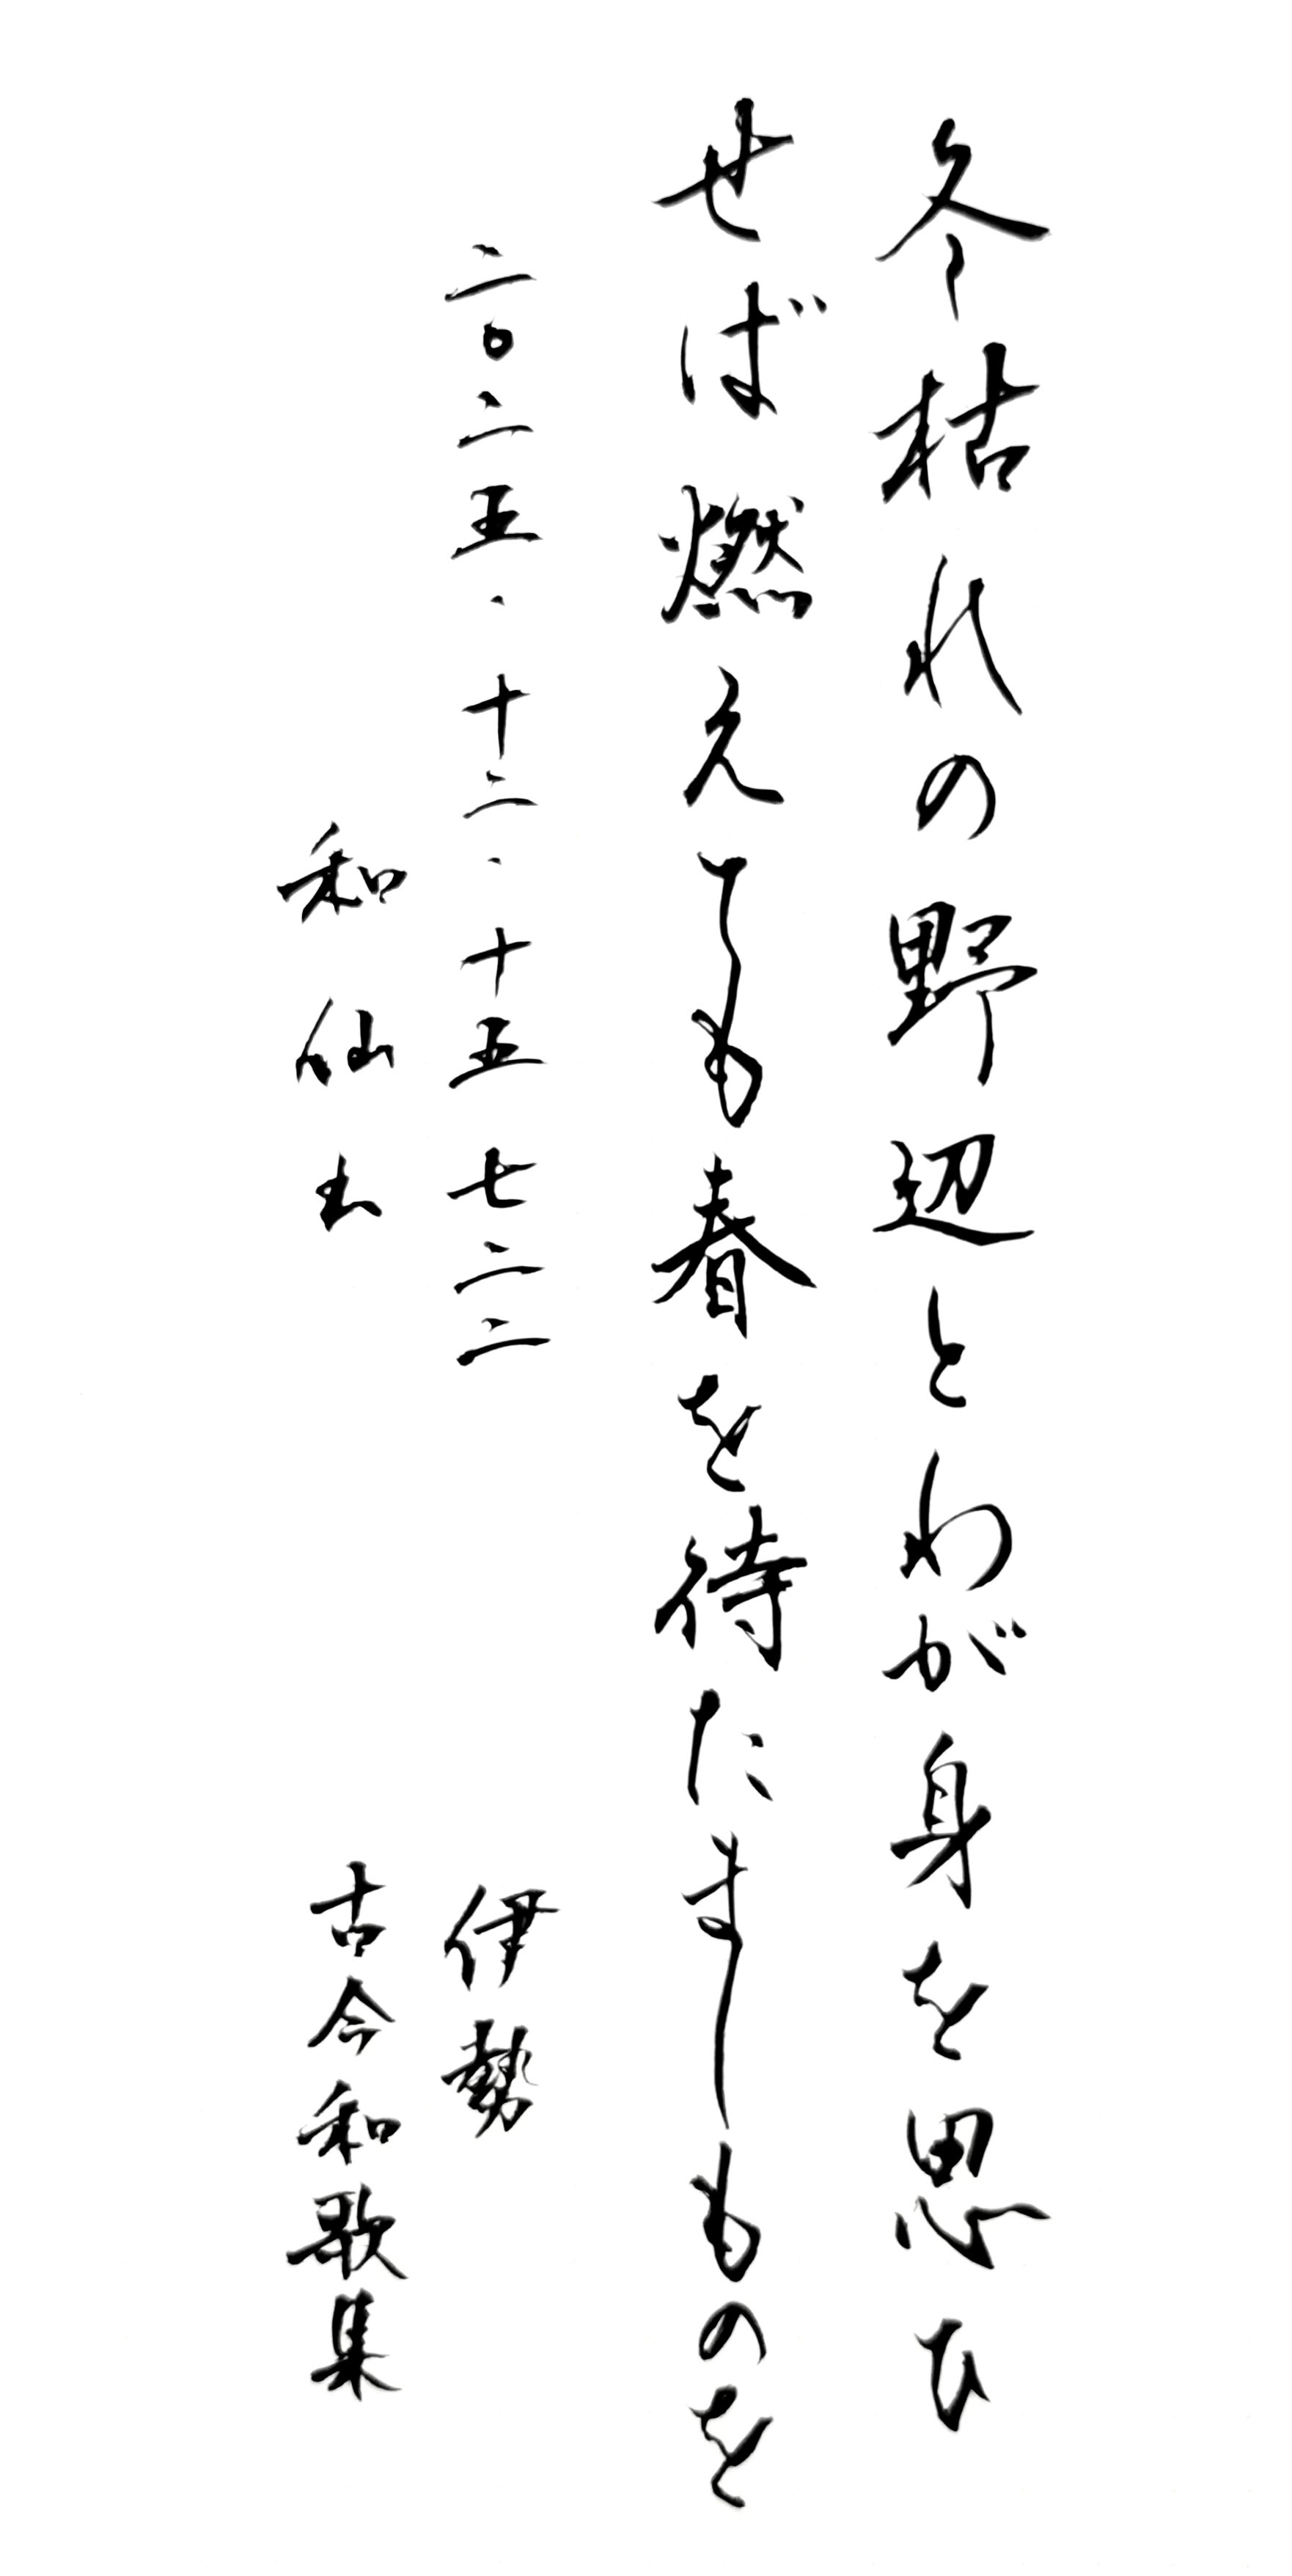 冬枯れの野辺とわが身を思ひ
せば燃えても春を待たましものを
二〇二五.十二.十五七二二
伊勢
和仙
古今和歌集